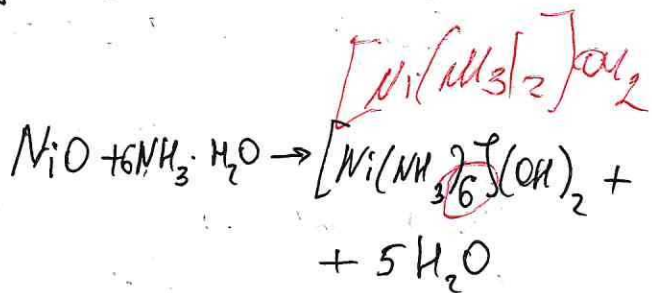 [Ni(NH3)2]OH2
NiO + 6NH3·H2O → [Ni(NH3)6](OH)2 +
+ 5H2O